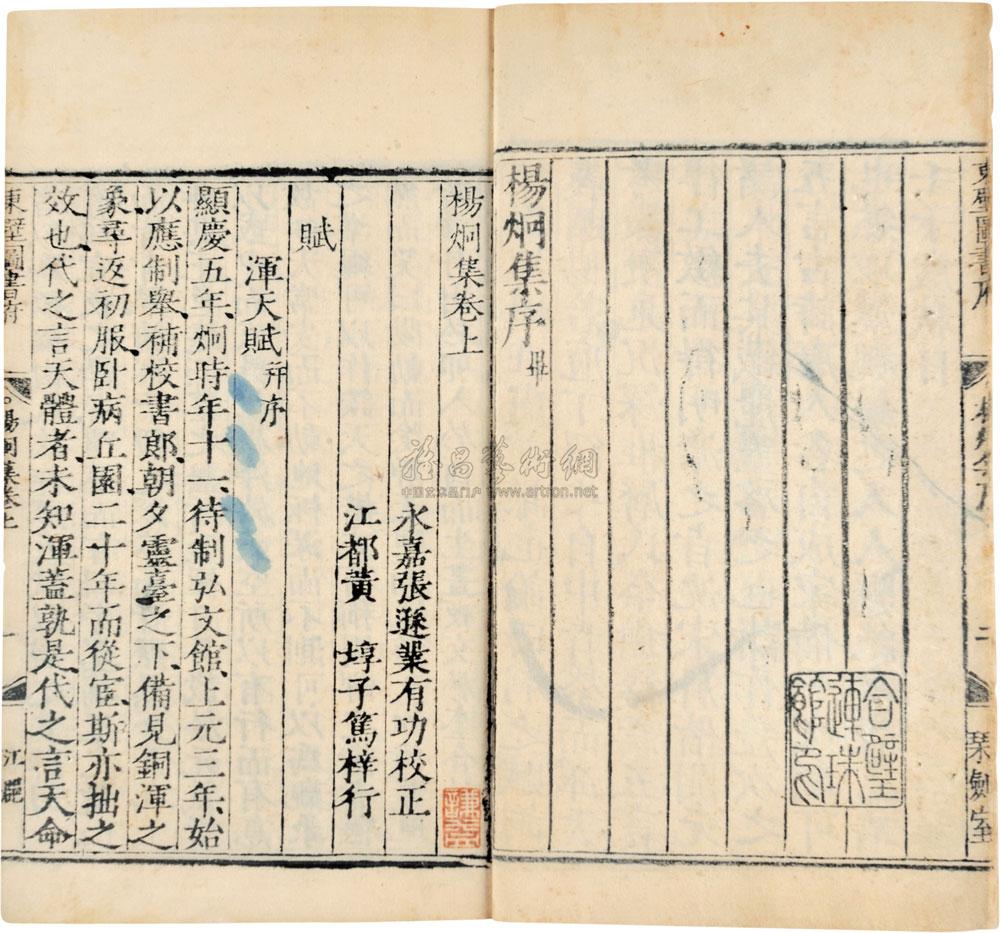 東壁圖書府
楊炯集序
二
琹劍室
合璧
連珠
楊炯集序 畢
楊炯集卷上
永嘉張遜業有功校正
江都黃 埻子篤梓行
賦
渾天賦 并序
顯慶五年、炯時年十一、待制弘文館、上元三年、始
以應制舉、補校書郎、朝夕靈臺之下、備見銅渾之
象、尋返初服、卧病丘園、二十年而從宦、斯亦拙之
效也、代之言天體者、未知渾蓋孰是、代之言天命
東壁圖書府
楊炯集卷上
一
江
雅昌藝術網
中国艺术品门户 www.artron.net